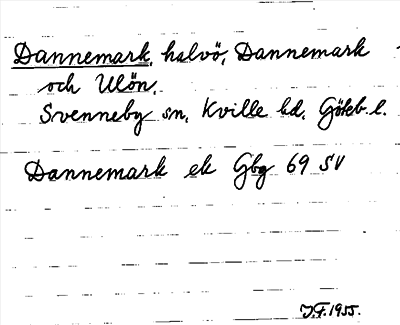 Dannemark, halvö, Dannemark
och Ulön,
Svenneby sn, Kville hd, Göteb. l.
Dannemark ek Gbg 69 SV
J.F. 1955.